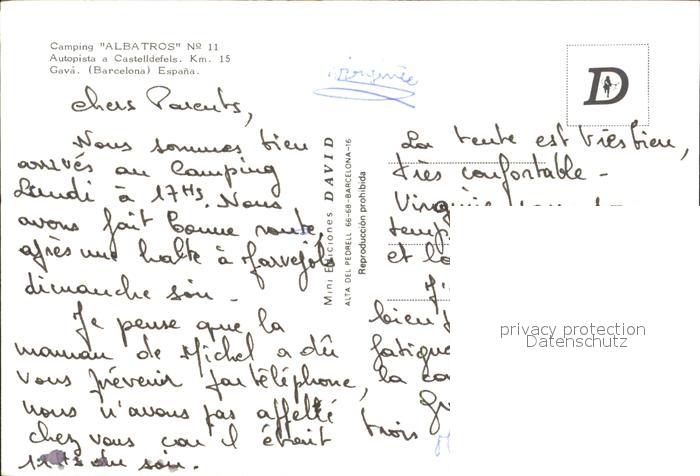 Camping "ALBATROS" Nº 11
Autopista a Castelldefels. Km. 15
Gavá. (Barcelona) España.
Virginie
D
chers Parents,
Nous sommes bien
arrivés au Camping
Lundi à 17Hs. Nous
avons fait bonne route,
après une halte à Marvejols
dimanche soir -
Je pense que la
maman de Michel a dû
vous prévenir par téléphone,
nous n'avons pas appellé
chez vous car il était
11Hs du soir.
Mini Ediciones DAVID
ALTA DEL PEDRELL 66-68-BARCELONA-16
Reproducción prohibida
La tente est très bien,
très confortable -
Virginie
et
bien
la
trois
privacy protection
Datenschutz